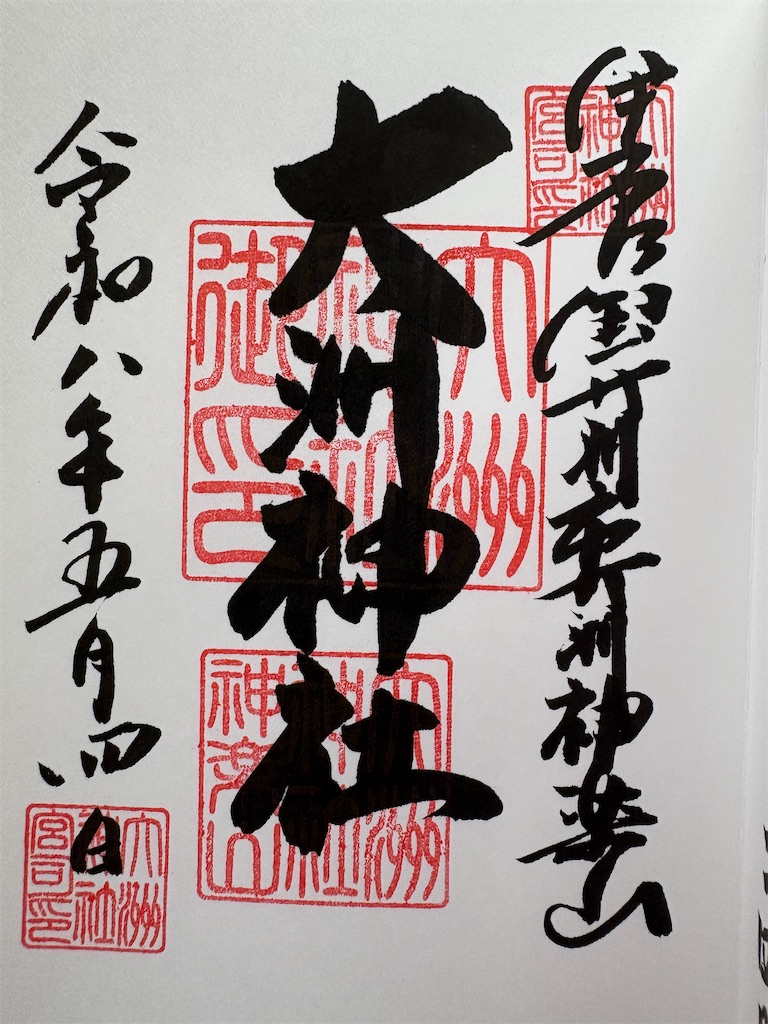 国
洲神楽山
大洲神社
令和八年五月四日
大洲
神社
宮司印
大洲
神社
御印
大洲
神社
神楽山
大洲
神社
宮司印